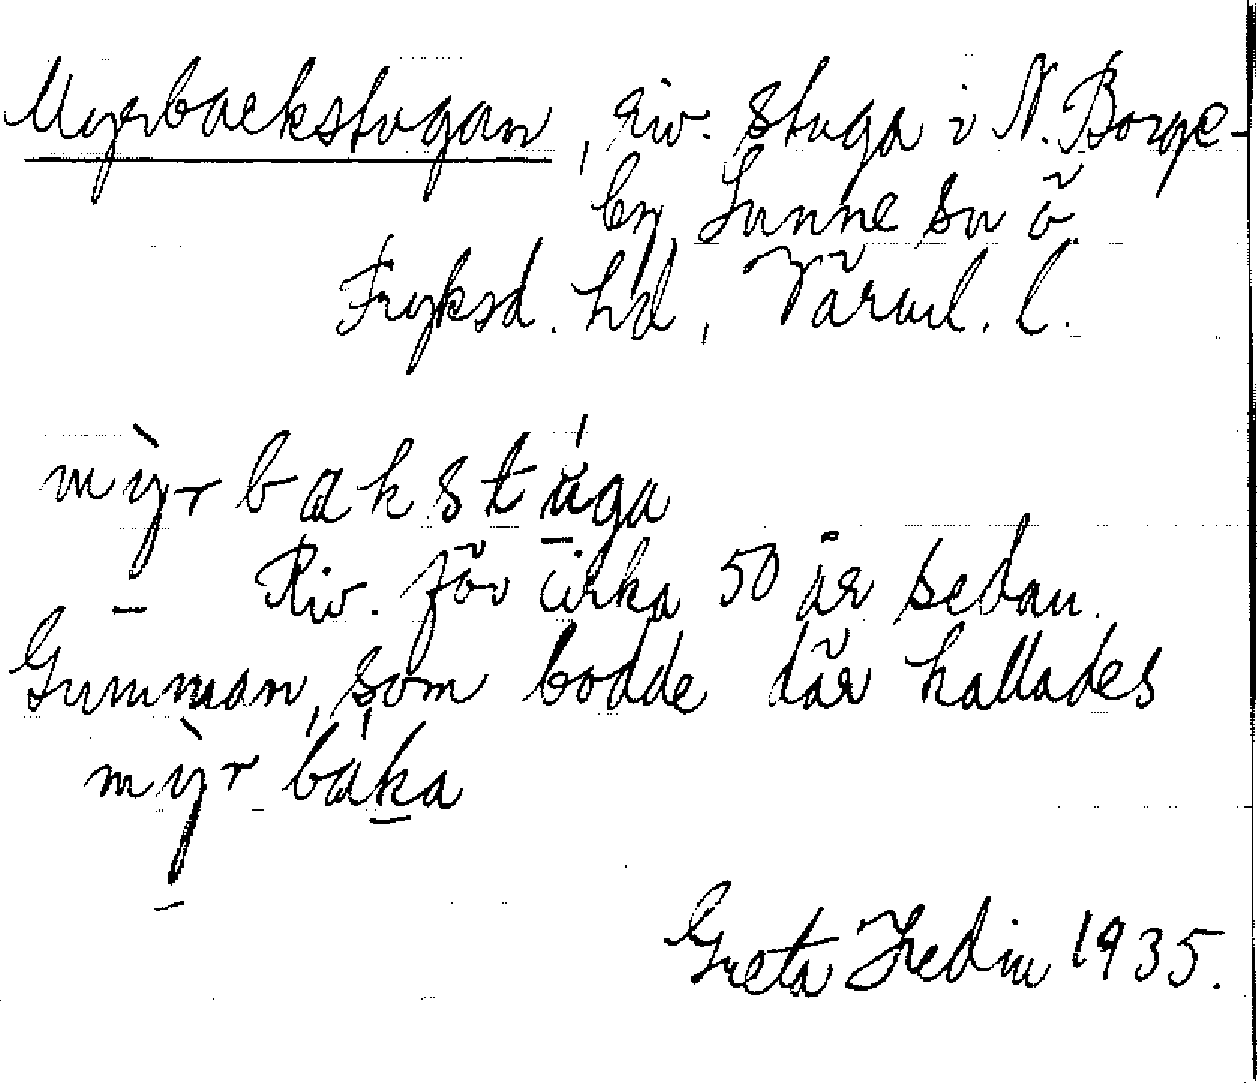 Myrbackstugan, riv. stuga i N. Borge-
by Sunne sn ö
Fryksd. hd, Värml. l.
mỳrbakstúga
Riv. för cirka 50 år sedan.
Gumman, som bodde där kallades
mỳrbáka
Greta Hedin 1935.